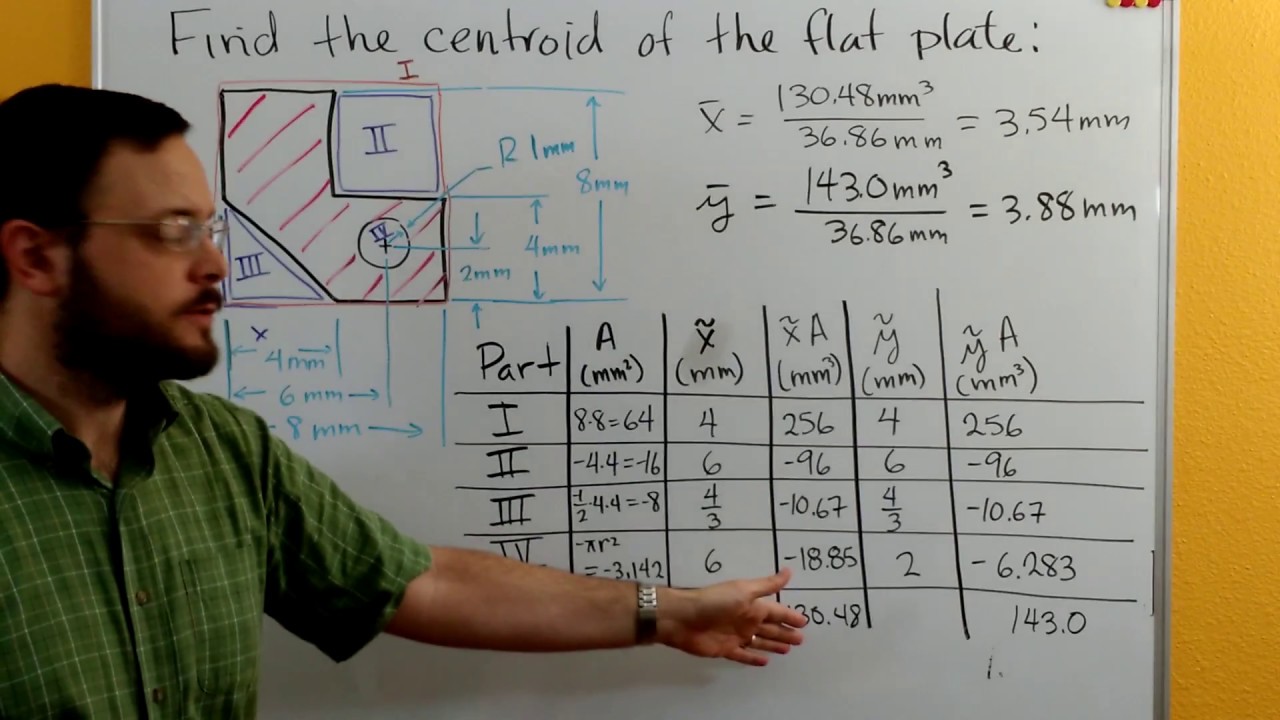 Find the centroid of the flat plate:
I
II
R 1mm
8mm
IV
4mm
2mm
III
x
4mm
6 mm
8 mm
x̄ = 130.48mm³ / 36.86mm = 3.54mm
ȳ = 143.0mm³ / 36.86mm = 3.88mm
Part A (mm²) x̃ (mm) x̃A (mm³) ỹ (mm) ỹA (mm³)
I 8·8=64 4 256 4 256
II -4·4=-16 6 -96 6 -96
III ½·4·4=-8 4/3 -10.67 4/3 -10.67
IV -πr² =-3.142 6 -18.85 2 -6.283
30.48 143.0